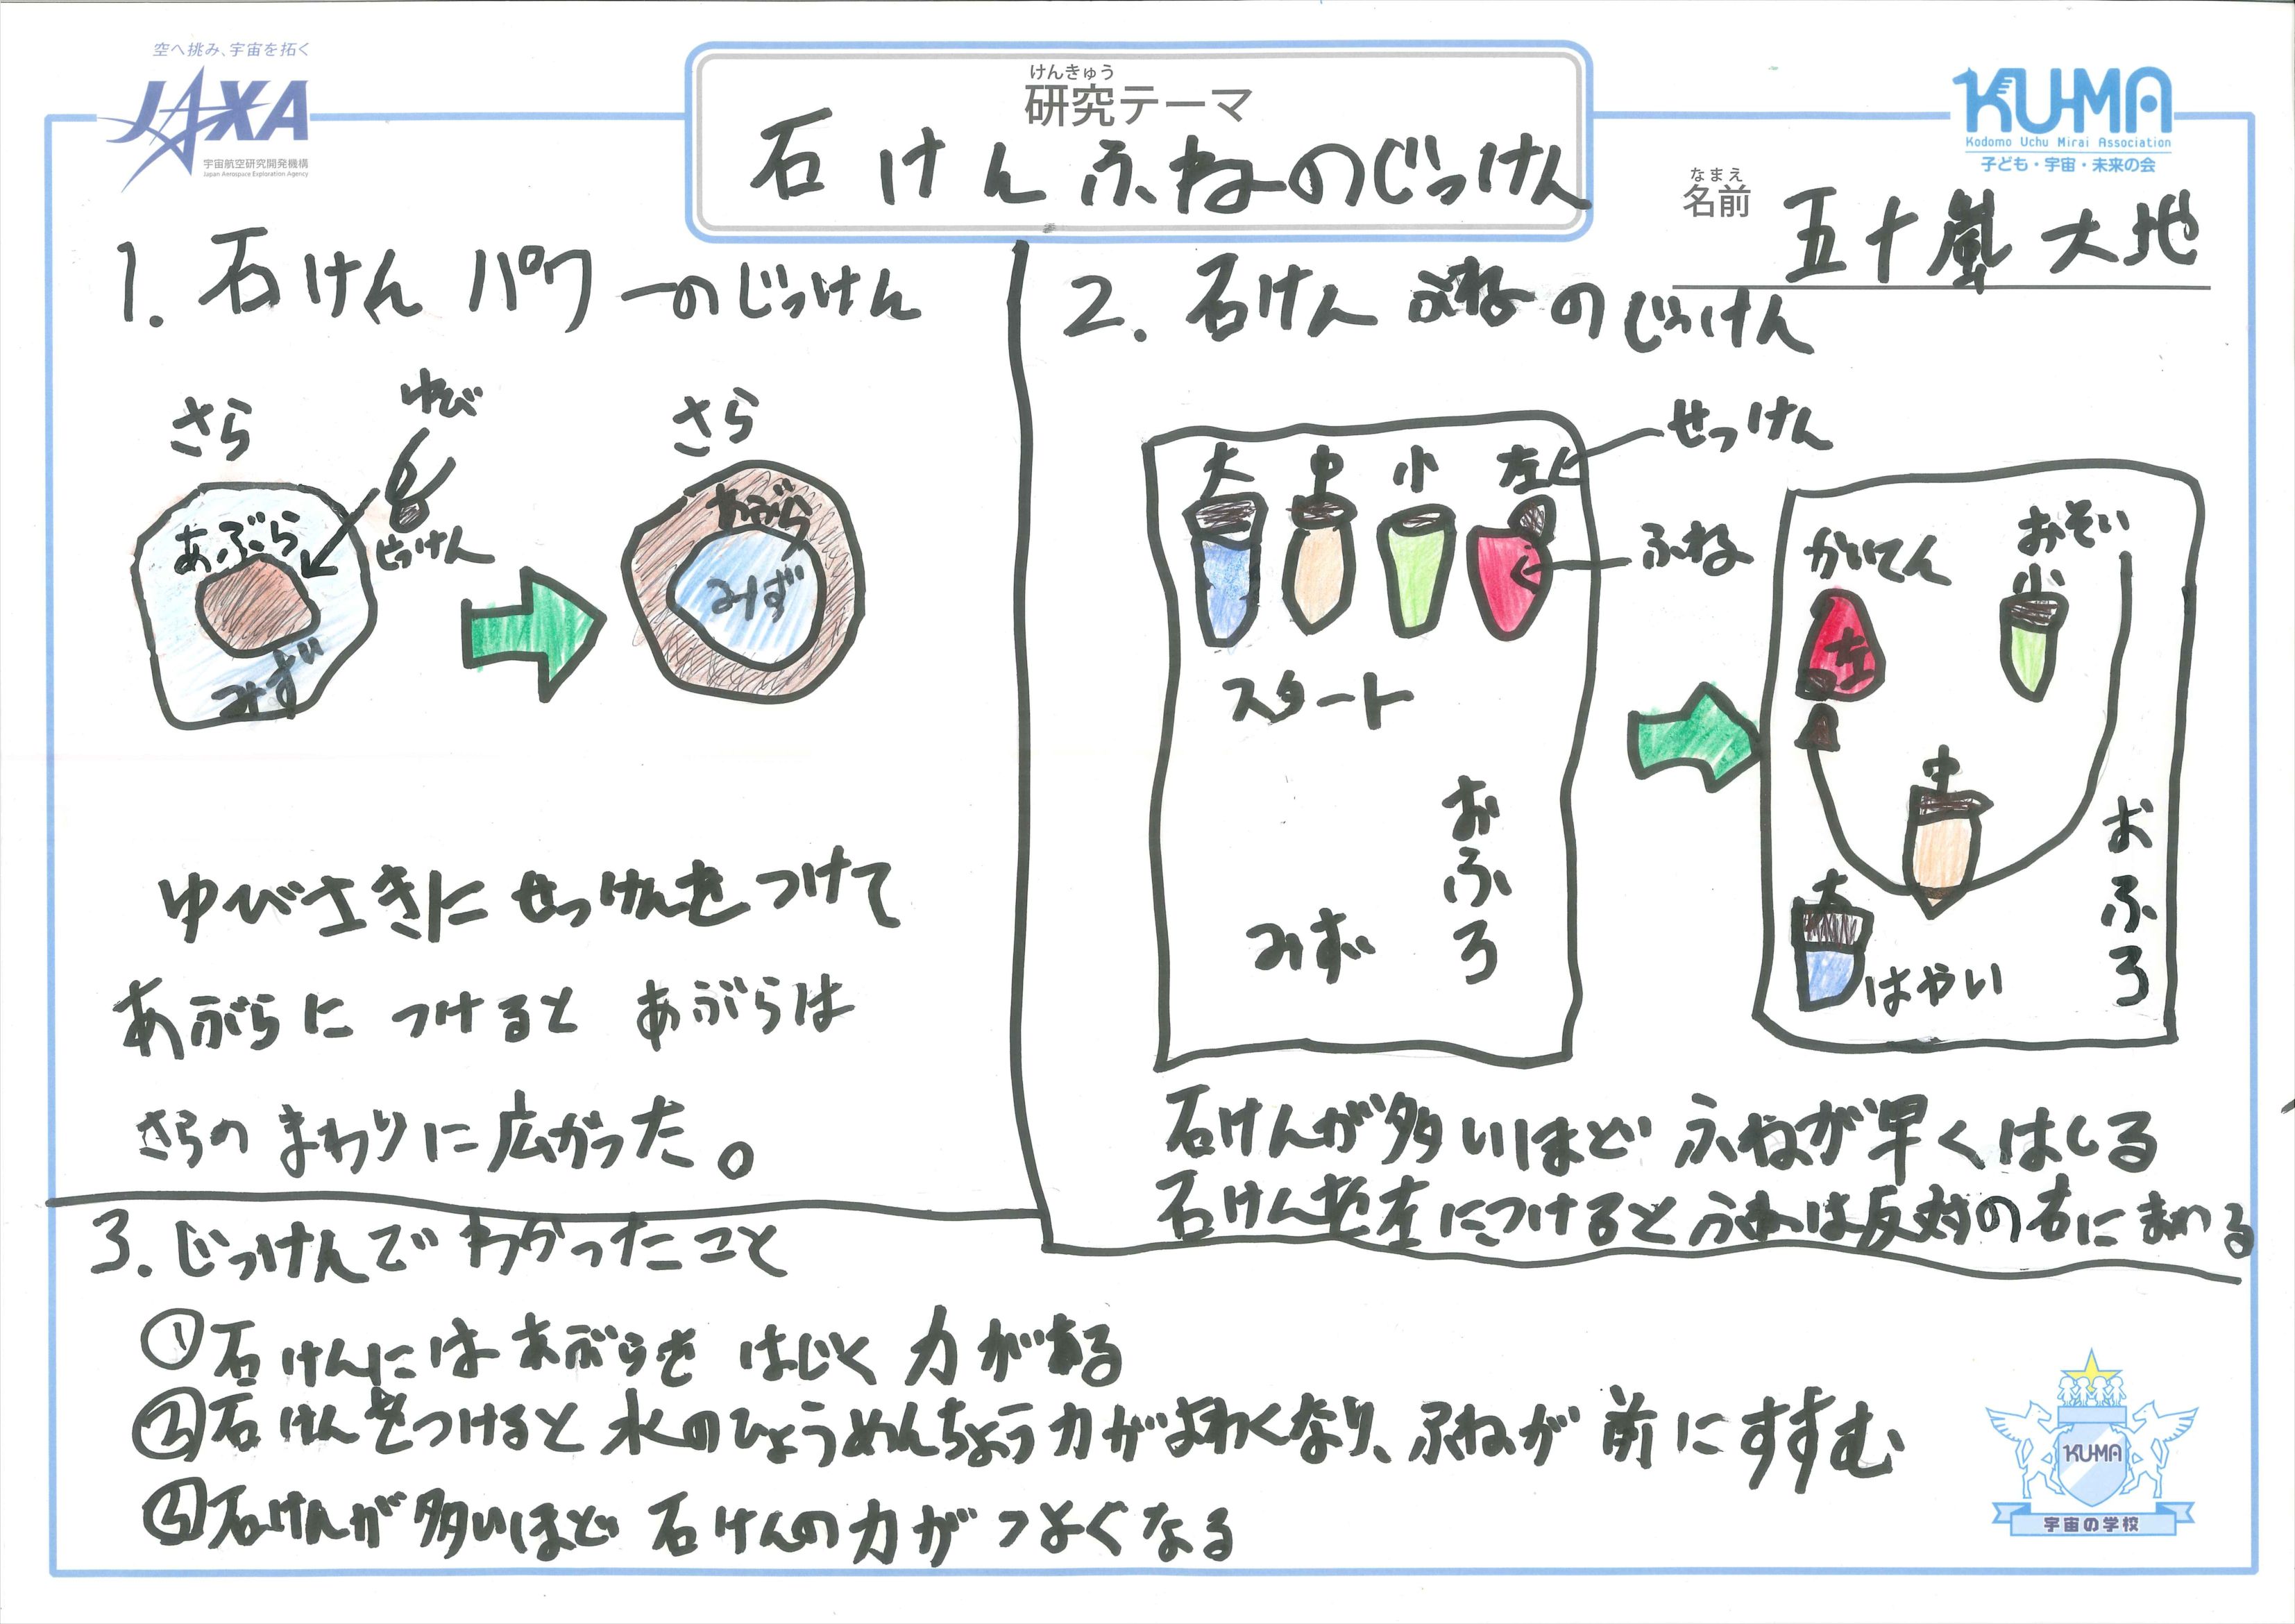 空へ挑み、宇宙を拓く
JAXA
宇宙航空研究開発機構
Japan Aerospace Exploration Agency
けんきゅう
研究テーマ
石けんふねのじっけん
KU-MA
Kodomo Uchu Mirai Association
子ども・宇宙・未来の会
なまえ
名前
五十嵐 大地
1. 石けん パワーのじっけん
さら
ゆび
あぶら
せっけん
みず
さら
あぶら
みず
ゆびさきに せっけんをつけて
あぶらに つけると あぶらは
さらの まわりに広がった。
2. 石けん ふねのじっけん
せっけん
大 中 小 左
ふね
スタート
おふろ
みず
かいてん
おそい
小
左
中
大
はやい
おふろ
石けんが多いほど ふねが早くはしる
石けんを左につけると ふねは反対の右にまわる
3. じっけんで わかったこと
①石けんには あぶらを はじく 力がある
②石けんをつけると 水のひょうめんちょう力がよわくなり、ふねが 前にすすむ
③石けんが多いほど 石けんの力が つよくなる
KU-MA
宇宙の学校